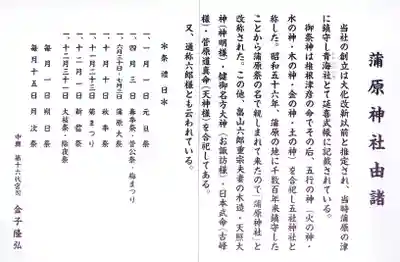 蒲原神社由諸
当社の創立は大化改新以前と推定され、当時蒲原の津
に鎮守し青海社とて延喜式帳に記載されている。
御祭神は椎根津彦の命でその后、五行の神（火の神・
水の神・木の神・金の神・土の神）を合祀し五社神社と
称した。昭和五十六年、蒲原の地に千数百年来鎮守した
ことから蒲原祭の名で親しまれて来たので「蒲原神社」と
改称された。この他、高山六郎重宗夫妻の木造・天照大
神（神明様）・健御名方大神（お諏訪様）・日本武命（古峰
様）・菅原道真命（天神様）を合祀してある。
又、通称六郎様とも云われている。
※祭礼日※
一、一月一日 元旦祭
一、四月三日 春季祭・菅公祭・梅まつり
一、六月三十日・七月二日 蒲原大祭
一、十月十日 秋季祭
一、十一月二十三日 菊まつり
一、十二月一日 新嘗祭
一、十二月三十一日 大祓祭・除夜祭
毎月一日 朔日祭
毎月十五日 月次祭
中興 第十六代宮司 金子隆弘